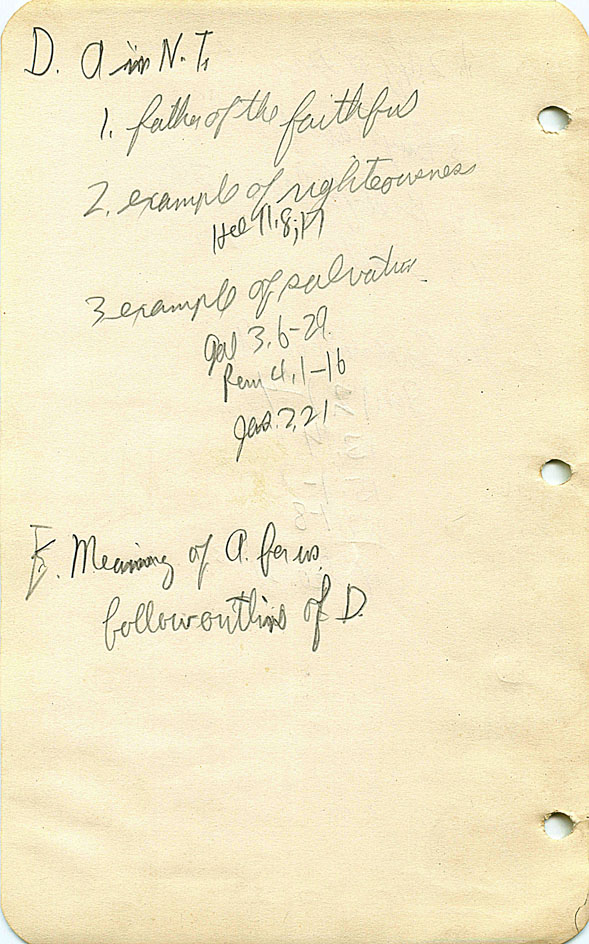 D. A in N.T.
1. father of the faithful
2. example of righteousness
Heb 11, 8; 17
3 example of salvation
Gal 3, 6-29.
Rom 4, 1-16
Jas. 2, 21
E. Meaning of A. for us.
follow outline of D.